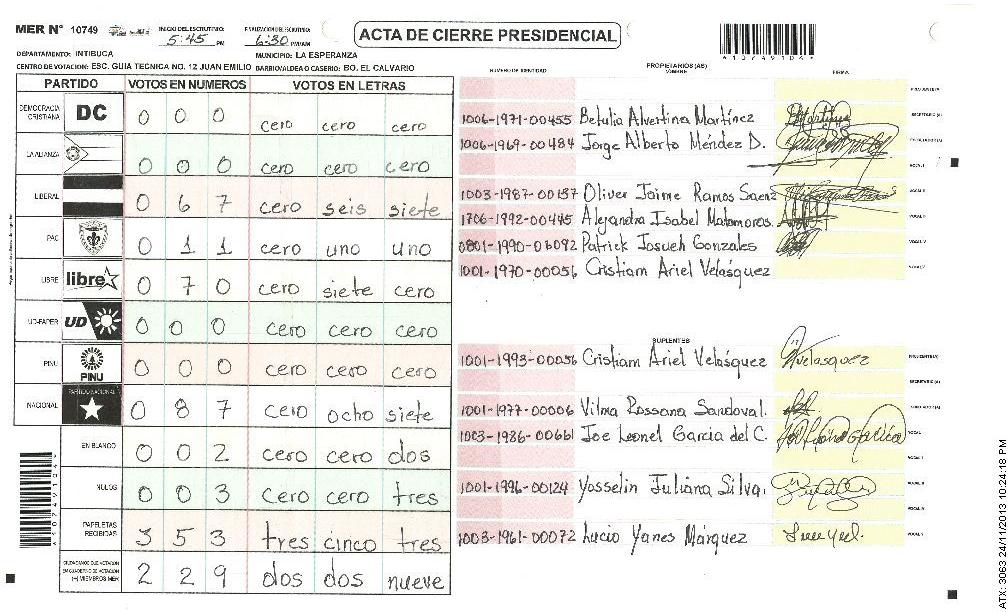 MER N° 10749
INICIO DEL ESCRUTINIO: 5:45 PM
FINALIZACION DEL ESCRUTINIO: 6:30 PM/AM
ACTA DE CIERRE PRESIDENCIAL
DEPARTAMENTO: INTIBUCA MUNICIPIO: LA ESPERANZA
CENTRO DE VOTACION: ESC. GUIA TECNICA NO. 12 JUAN EMILIO BARRIO/ALDEA O CASERIO: BO. EL CALVARIO
PARTIDO VOTOS EN NUMEROS VOTOS EN LETRAS
DEMOCRACIA CRISTIANA DC 0 0 0 cero cero cero
LA ALIANZA 0 0 0 cero cero cero
LIBERAL 0 6 7 cero seis siete
PAC 0 1 1 cero uno uno
LIBRE libre 0 7 0 cero siete cero
UD-FAPER UD 0 0 0 cero cero cero
PINU PINU 0 0 0 cero cero cero
NACIONAL PARTIDO NACIONAL 0 8 7 cero ocho siete
EN BLANCO 0 0 2 cero cero dos
NULOS 0 0 3 cero cero tres
PAPELETAS RECIBIDAS 3 5 3 tres cinco tres
CIUDADANOS QUE VOTARON EN CUADERNO DE VOTACION (+) MIEMBROS MER 2 2 9 dos dos nueve
NUMERO DE IDENTIDAD PROPIETARIOS (AS) NOMBRE FIRMA
1006-1971-00455 Betulia Alvertina Martínez
1006-1969-00484 Jorge Alberto Méndez D.
1003-1987-00137 Oliver Jaime Ramos Saenz
1706-1992-00445 Alejandra Isabel Matamoros.
0801-1990-06092 Patrick Josueh Gonzales
1001-1970-00056 Cristiam Ariel Velásquez
SUPLENTES
1001-1993-00056 Cristiam Ariel Velásquez
1001-1977-00006 Vilma Rossana Sandoval.
1003-1986-00661 Joe Leonel Garcia del C.
1001-1996-00124 Yosselin Juliana Silva.
1003-1961-00072 Lucio Yanes Márquez
ATX: 3063 24/11/2013 10:24:18 PM